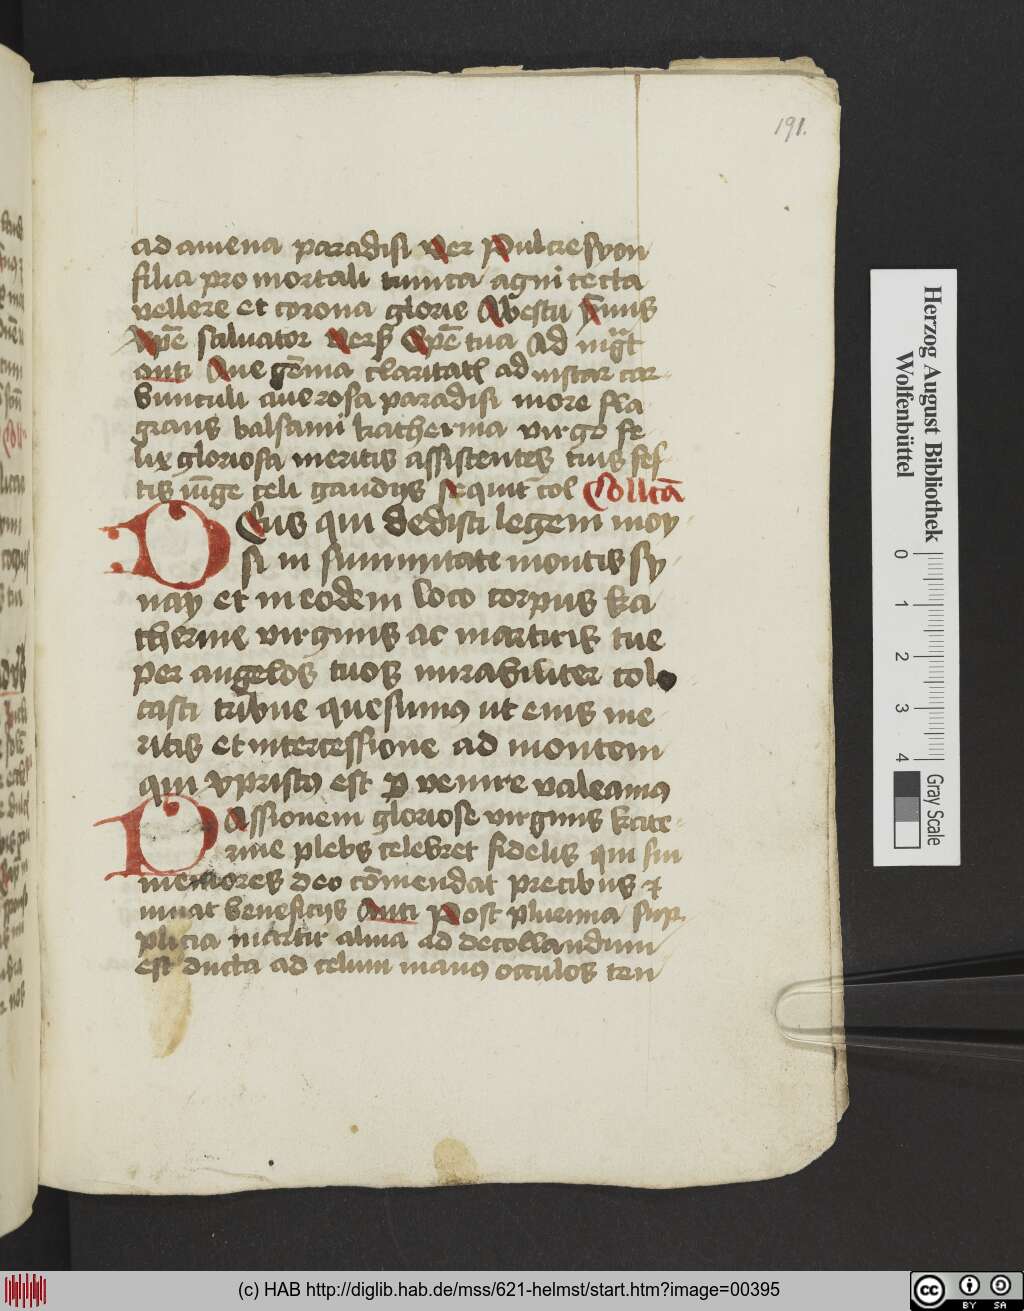 191.
ad amena paradisi ver Pulcre syon
filia pro mortali tunica agni tecta
vellere et corona glorie
salvator vers tua Ad
anti Aue gēma claritatis ad instar car
bunculi aue rosa paradisi more fla
grans balsami katherina virgo fe
lix gloriosa meritis assistentes tuis fes
tis iūge celi gaudijs sequit col Collcā
Deus qui dedisti legem moy
si in summitate montis sy
nay et in eodem loco corpus ka
therine virginis ac martiris tue
per angelos tuos mirabiliter collo
casti tribue quesumus ut eius me
ritis et intercessione ad montem
qui xpristus est p venire valeamus
Passionem gloriose virginis kate
rine plebs celebret fidelis qui sui
memores deo cōmendat precibus et
iuuat beneficijs Anti Post plurima sup
plicia martir alma ad decollandum
est ducta ad celum manus occulos ten
Herzog August Bibliothek
Wolfenbüttel
0 1 2 3 4
Gray Scale
(c) HAB http://diglib.hab.de/mss/621-helmst/start.htm?image=00395
cc BY SA